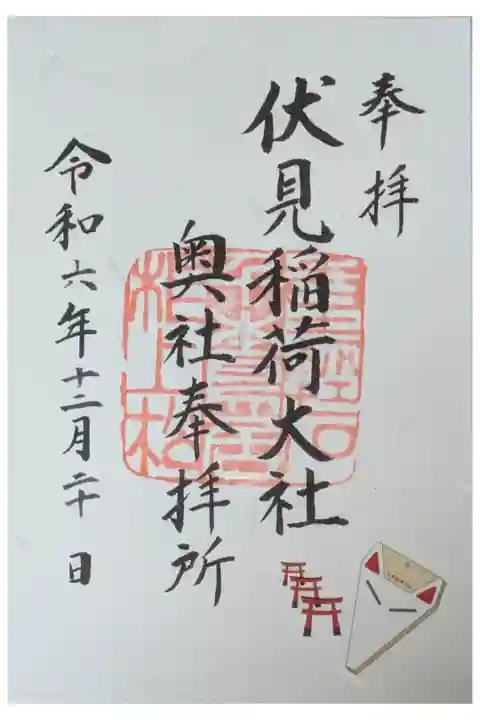 奉拝
伏見稲荷大社
奥社奉拝所
令和六年十二月二十日